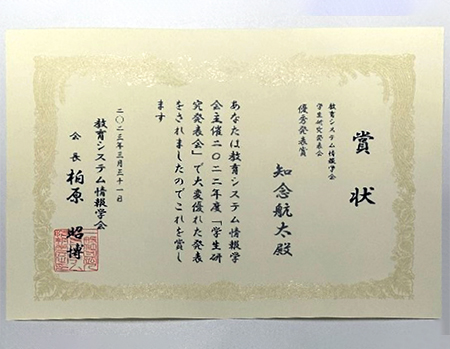 賞状
教育システム情報学会
学生研究発表会
優秀発表賞
知念航太殿
あなたは教育システム情報学
会主催二〇二二年度「学生研
究発表会」で大変優れた発表
をされましたのでこれを賞し
ます
二〇二三年三月三十一日
教育システム情報学会
会長 柏原 昭博